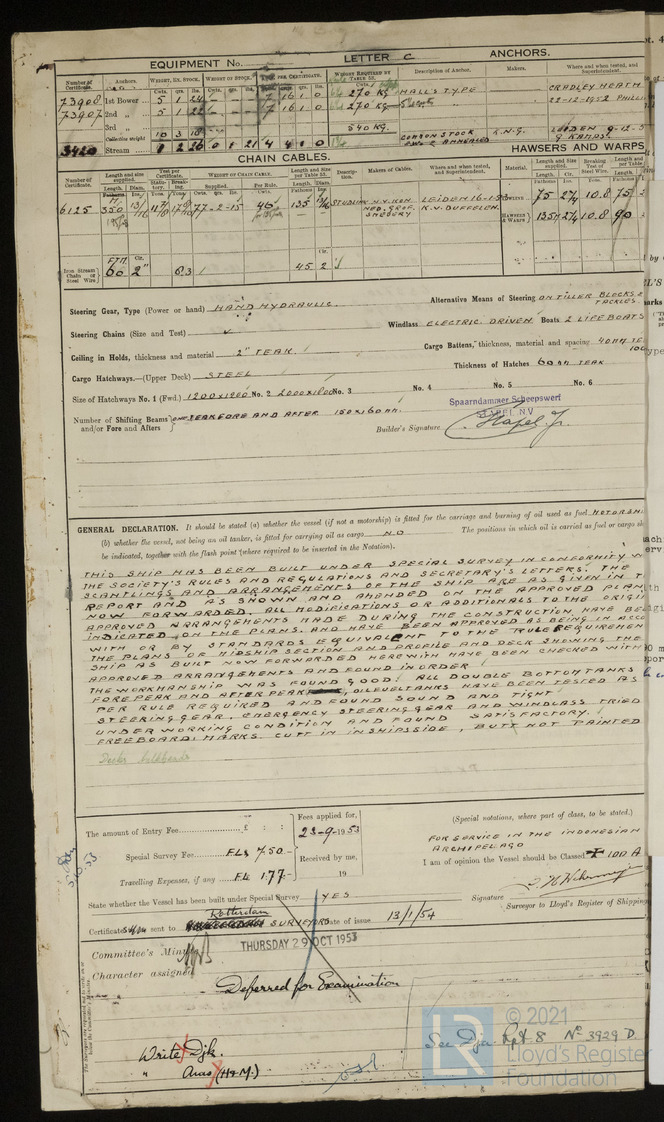 EQUIPMENT No. LETTER C ANCHORS.
Number of Certificate. Anchors. WEIGHT, EX. STOCK. WEIGHT OF STOCK. PER CERTIFICATE. WEIGHT REQUIRED BY TABLE 53. Description of Anchor. Makers. Where and when tested, and Superintendent.
73908 1st Bower 5 1 24 7 16 1 0 270 KG HALL'S TYPE CRADLEY HEATH
73907 2nd „ 5 1 22 7 16 1 0 270 KG 22-12-1952 PHILLI
3rd „ 540 KG.
Collective weight 10 3 18
3420 Stream 1 2 26 0 1 21 4 4 1 0 COMMON STOCK K.N.G. LEIDEN 9-12-5
CHAIN CABLES. HAWSERS AND WARPS
Number of Certificate. Length and size supplied. Test per Certificate. WEIGHT OF CHAIN CABLE. Length and size per Table 53. Description. Makers of Cables. Where and when tested, and Superintendent. Material. Length and Size supplied. Breaking Test of Steel Wire. Length
6125 350 13/16 77-2-15 46 135 13/16 STUDLINK N.V. KON. NED. GROF. SMEDERY LEIDEN 16-1-53 K.V. DUFFELEN. 75 2¾ 10.8 75
HAWSERS & WARPS 135 2¾ 10.8 90
Iron Stream Chain or Steel Wire 60 2" 6.3 45 2
Steering Gear, Type (Power or hand) HAND HYDRAULIC. Alternative Means of Steering ON TILLER BLOCKS & TACKLES.
Steering Chains (Size and Test) Windlass ELECTRIC DRIVEN Boats 2 LIFEBOATS
Ceiling in Holds, thickness and material 2" TEAK Cargo Battens, thickness, material and spacing 40mm TE
Cargo Hatchways.—(Upper Deck) STEEL Thickness of Hatches 60mm TEAK
Size of Hatchways No. 1 (Fwd.) 1200x1200 No. 2 2000x1800 No. 3 No. 4 No. 5 No. 6
Number of Shifting Beams and/or Fore and Afters } ONE TEAK FORE AND AFTER 150x60mm.
Spaarndammer Scheepswerf
STAPEL N.V
Builder's Signature Stapel Jr.
GENERAL DECLARATION. It should be stated (a) whether the vessel (if not a motorship) is fitted for the carriage and burning of oil used as fuel MOTORSH
(b) whether the vessel, not being an oil tanker, is fitted for carrying oil as cargo NO The positions in which oil is carried as fuel or cargo sh
be indicated, together with the flash point (where required to be inserted in the Notation).
THIS SHIP HAS BEEN BUILT UNDER SPECIAL SURVEY IN CONFORMITY W
THE SOCIETY'S RULES AND REGULATIONS AND SECRETARY'S LETTERS. THE
SCANTLINGS AND ARRANGEMENTS OF THE SHIP ARE AS GIVEN IN T
REPORT AND AS SHOWN AND AMENDED ON THE APPROVED PLAN
NOW FORWARDED. ALL MODIFICATIONS OR ADDITIONALS TO THE ORIGI
APPROVED ARRANGEMENTS MADE DURING THE CONSTRUCTION, HAVE BE
INDICATED ON THE PLANS. AND HAVE BEEN APPROVED AS BEING IN ACCO
WITH OR BY STANDARDS EQUIVALENT TO THE TRUE REQUIREMEN
THE PLANS OF MIDSHIP SECTION AND PROFILE AND DECK SHEWING THE
SHIP AS BUILT NOW FORWARDED HEREWITH HAVE BEEN CHECKED WITH
APPROVED ARRANGEMENTS AND FOUND IN ORDER
THE WORKMANSHIP WAS FOUND GOOD. ALL DOUBLE BOTTOM TANKS
FOREPEAK AND AFTERPEAK, OILFUELTANKS HAVE BEEN TESTED AS
PER RULE REQUIRED AND FOUND SOUND AND TIGHT
STEERINGGEAR, EMERGENCY STEERINGGEAR AND WINDLASS TRIED
UNDER WORKING CONDITION AND FOUND SATISFACTORY.
FREEBOARD MARKS. CUTT IN IN SHIPSSIDE, BUTT NOT PAINTED
The amount of Entry Fee £ : : Fees applied for, 23-9-1953
Special Survey Fee FLs 750.- Received by me,
Travelling Expenses, if any FL 177.- 19
(Special notations, where part of class, to be stated.)
FOR SERVICE IN THE INDONESIAN
ARCHIPELAGO
I am of opinion the Vessel should be Classed ✠ 100 A
State whether the Vessel has been built under Special Survey YES
Signature
Surveyor to Lloyd's Register of Shipping
Certificate sent to Rotterdam SURVEYORS Date of issue 13/1/54
Committee's Minute THURSDAY 29 OCT 1953
Character assigned
Deferred for Examination
See Dja Rpt 8 No 3929 D.
Write Djk.
„ Ams (H&M)
© 2021
Lloyd's Register
Foundation